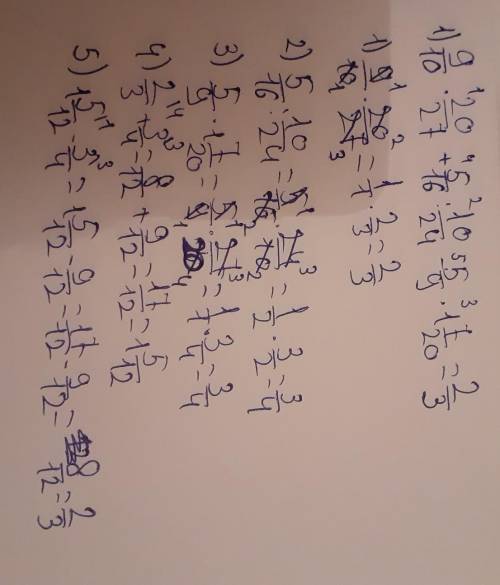 1) 9/10 · 20/27 + 5/16 : 10/24 - 5/9 · 1 7/20 = 2/3
1) 9/10 · 20/27 = 1/1 · 2/3 = 2/3
2) 5/16 : 10/24 = 5/16 · 24/10 = 1/2 · 3/2 = 3/4
3) 5/9 · 1 7/20 = 5/9 · 27/20 = 1/1 · 3/4 = 3/4
4) 2/3 + 3/4 = 8/12 + 9/12 = 17/12 = 1 5/12
5) 1 5/12 - 3/4 = 1 5/12 - 9/12 = 17/12 - 9/12 = 8/12 = 2/3